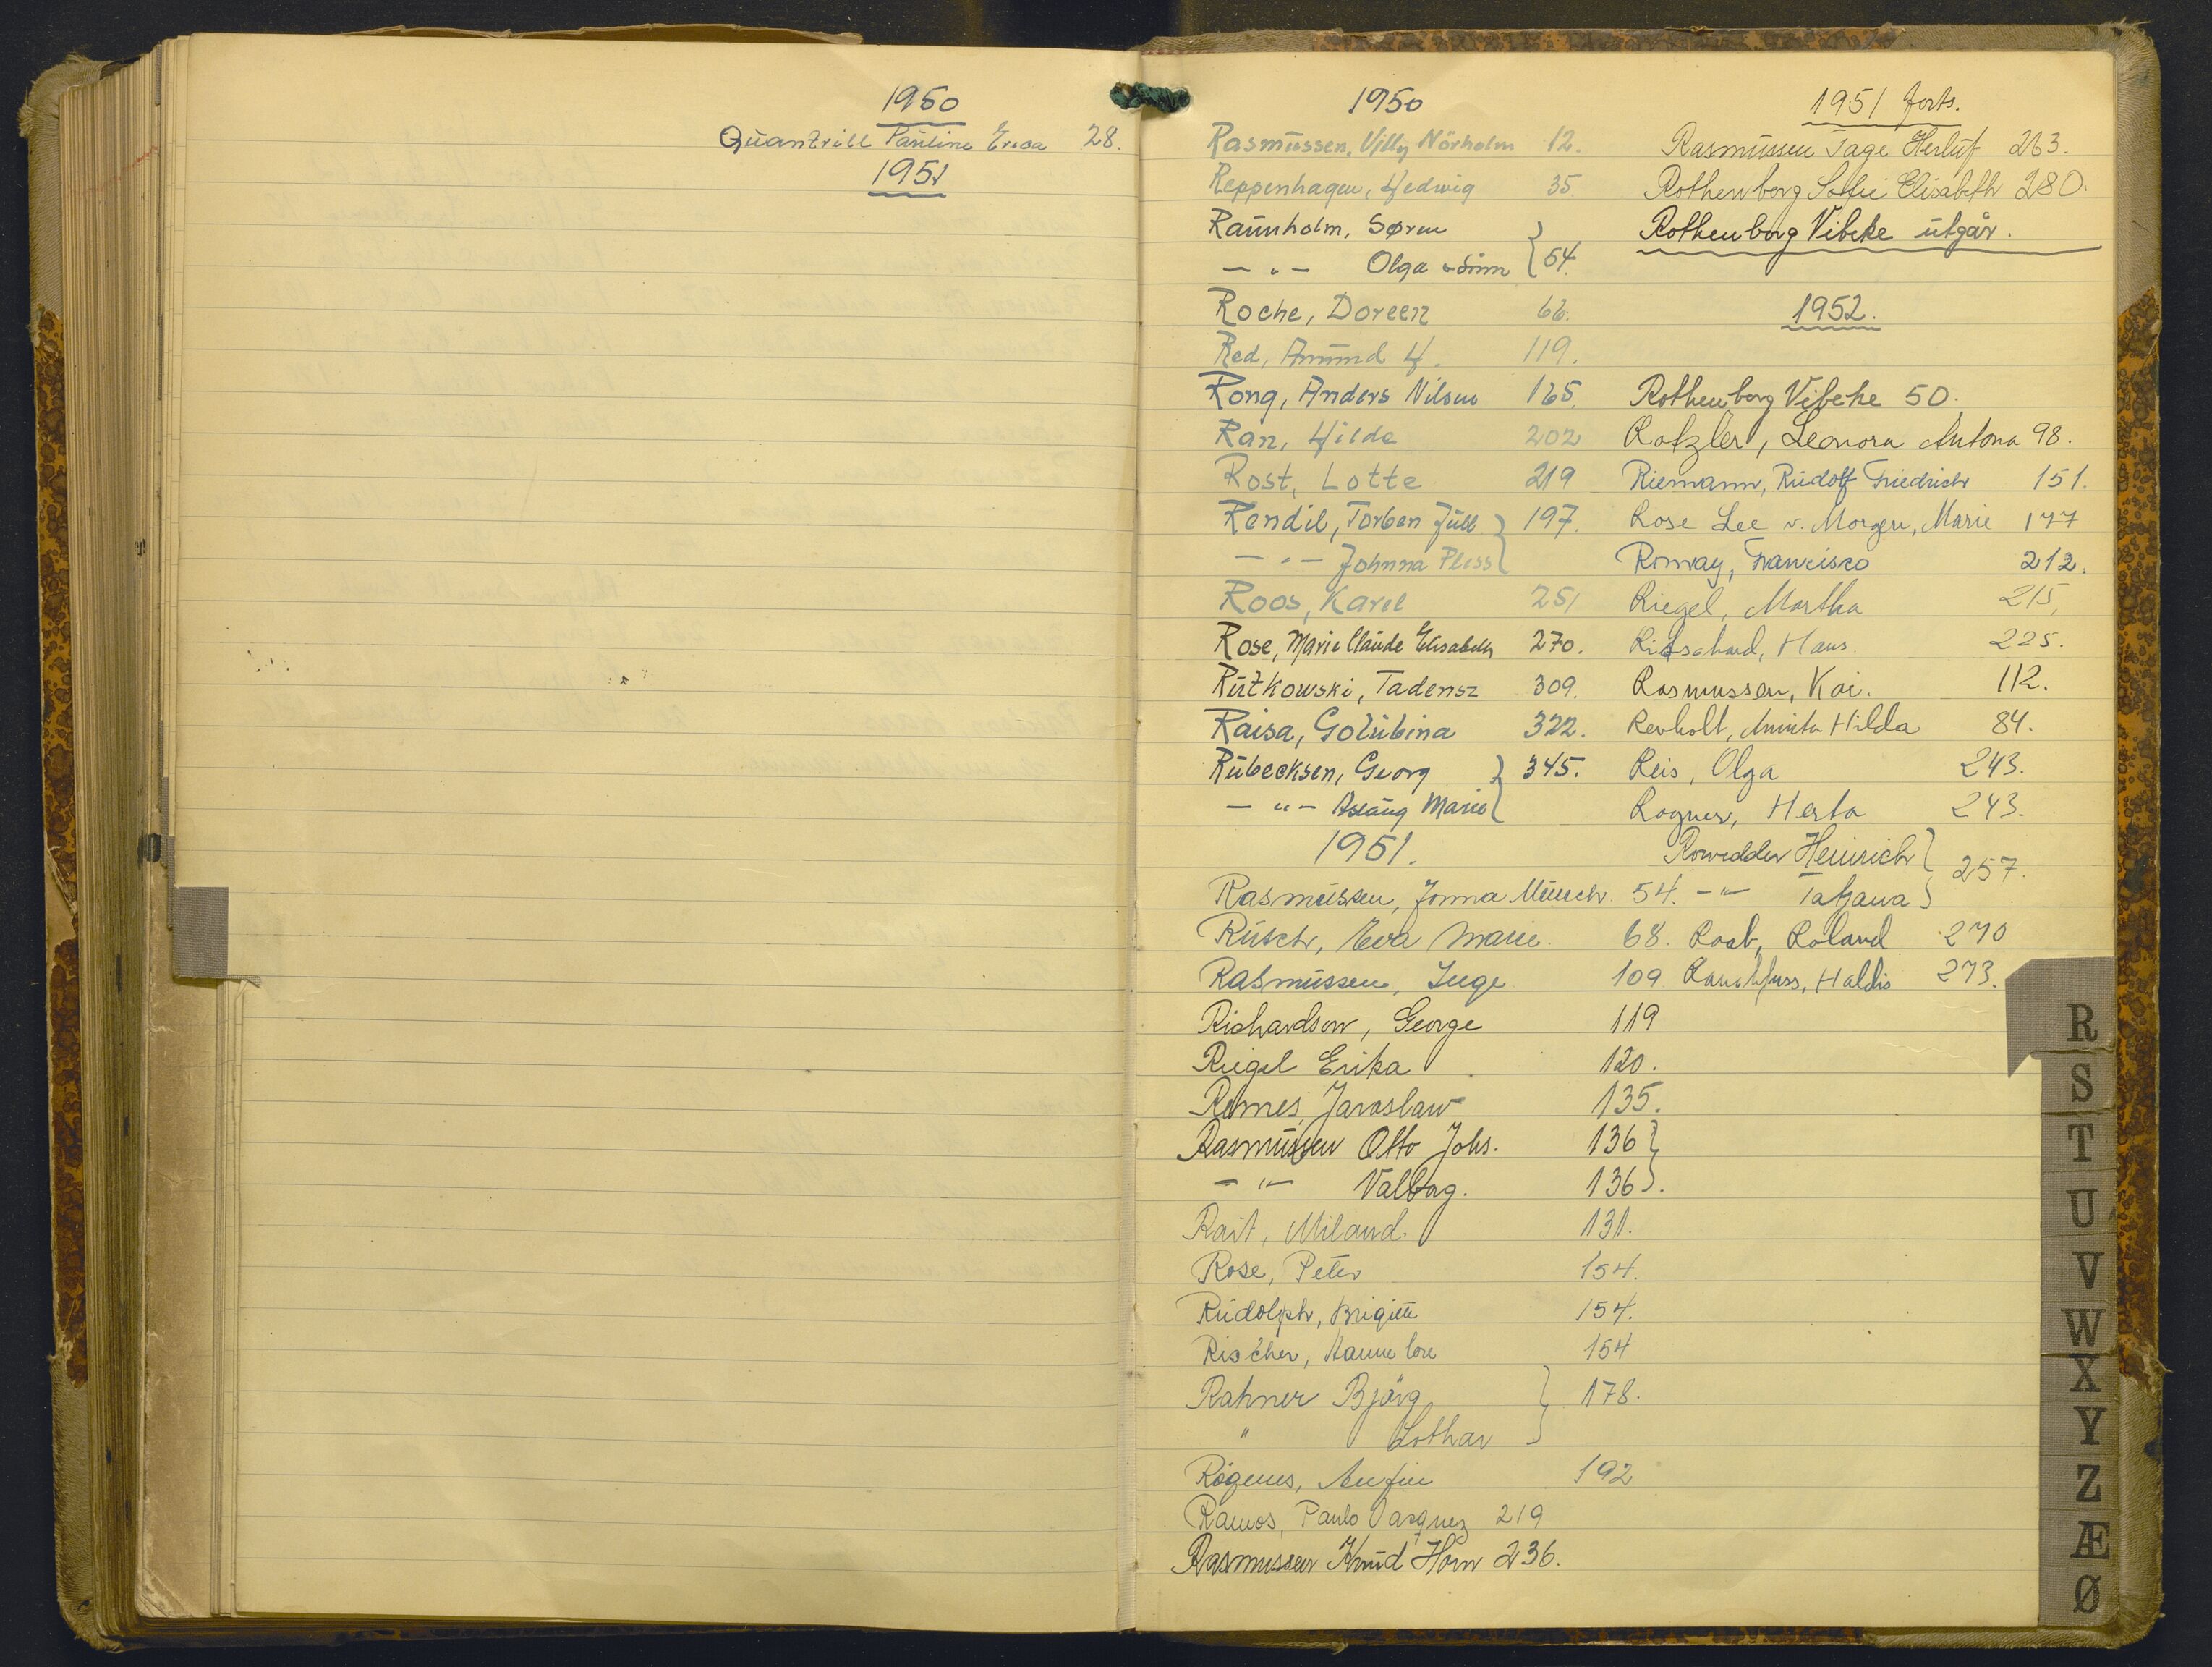 1950
Quantrill Pauline Erica 28.
1951
1950
Rasmüssen, Villy Nörholm 12.
Reppenhagen, Hedwig 35.
Raunholm, Søren
— " — Olga 54.
Roche, Doreen 62.
Red, Amund H. 119.
Rong, Anders Nilsen 165.
Ran, Hilde 202
Rost, Lotte 219
Rendil, Torben Juul 197.
— " — Johnna
Roos, Karel 251
Rose, Marie Claude Elisabeth 270.
Rutkowski, Tadensz 309.
Raisa, Golubina 322.
Rübecksen, Georg 345.
— " — Aslaug Marie
1951.
Rasmüssen, Jonna Münch 54.
Rüsch, Eva Marie 68.
Rasmüssen, Inge 109
Richardson, George 119
Riegel Erika 120.
Remes Jaroslaw 135.
Rasmüssen Otto Johs. 136
— " — Valborg. 136.
Rait, Miland. 131.
Rose, Peter 154.
Rüdolph, Brigitte 154.
Rischer, Hannelore 154
Rahner Bjørg 178.
" Lothar
Rögenes, 192
Ramos, Paulo Vasquez 219
Rasmussen Knud Horn 236.
1951 forts.
Rasmüssen Tage Herluf 263.
Rothenborg Sofie Elisabeth 280.
Rothenborg Vibeke utgår.
1952.
Rothenborg Vibeke 50.
Rotzler, Leonora Antona 98.
Riemann, Rüdolf Friedrich 151.
Rose Lee v. Morgen, Marie 177
Romay, Francisco 212.
Riegel, Martha 215,
Ritschard, Hans. 225.
Rasmussen, Kai. 112.
Revholt, Hilda 84.
Reis, Olga 243.
Rogner, Herta 243.
Rowedder Heinrich 257.
— " — Tatjana
Raab, Roland 270
Rauchfuss, Haldis 273.
R
S
T
U
V
W
X
Y
Z
Æ
Ø